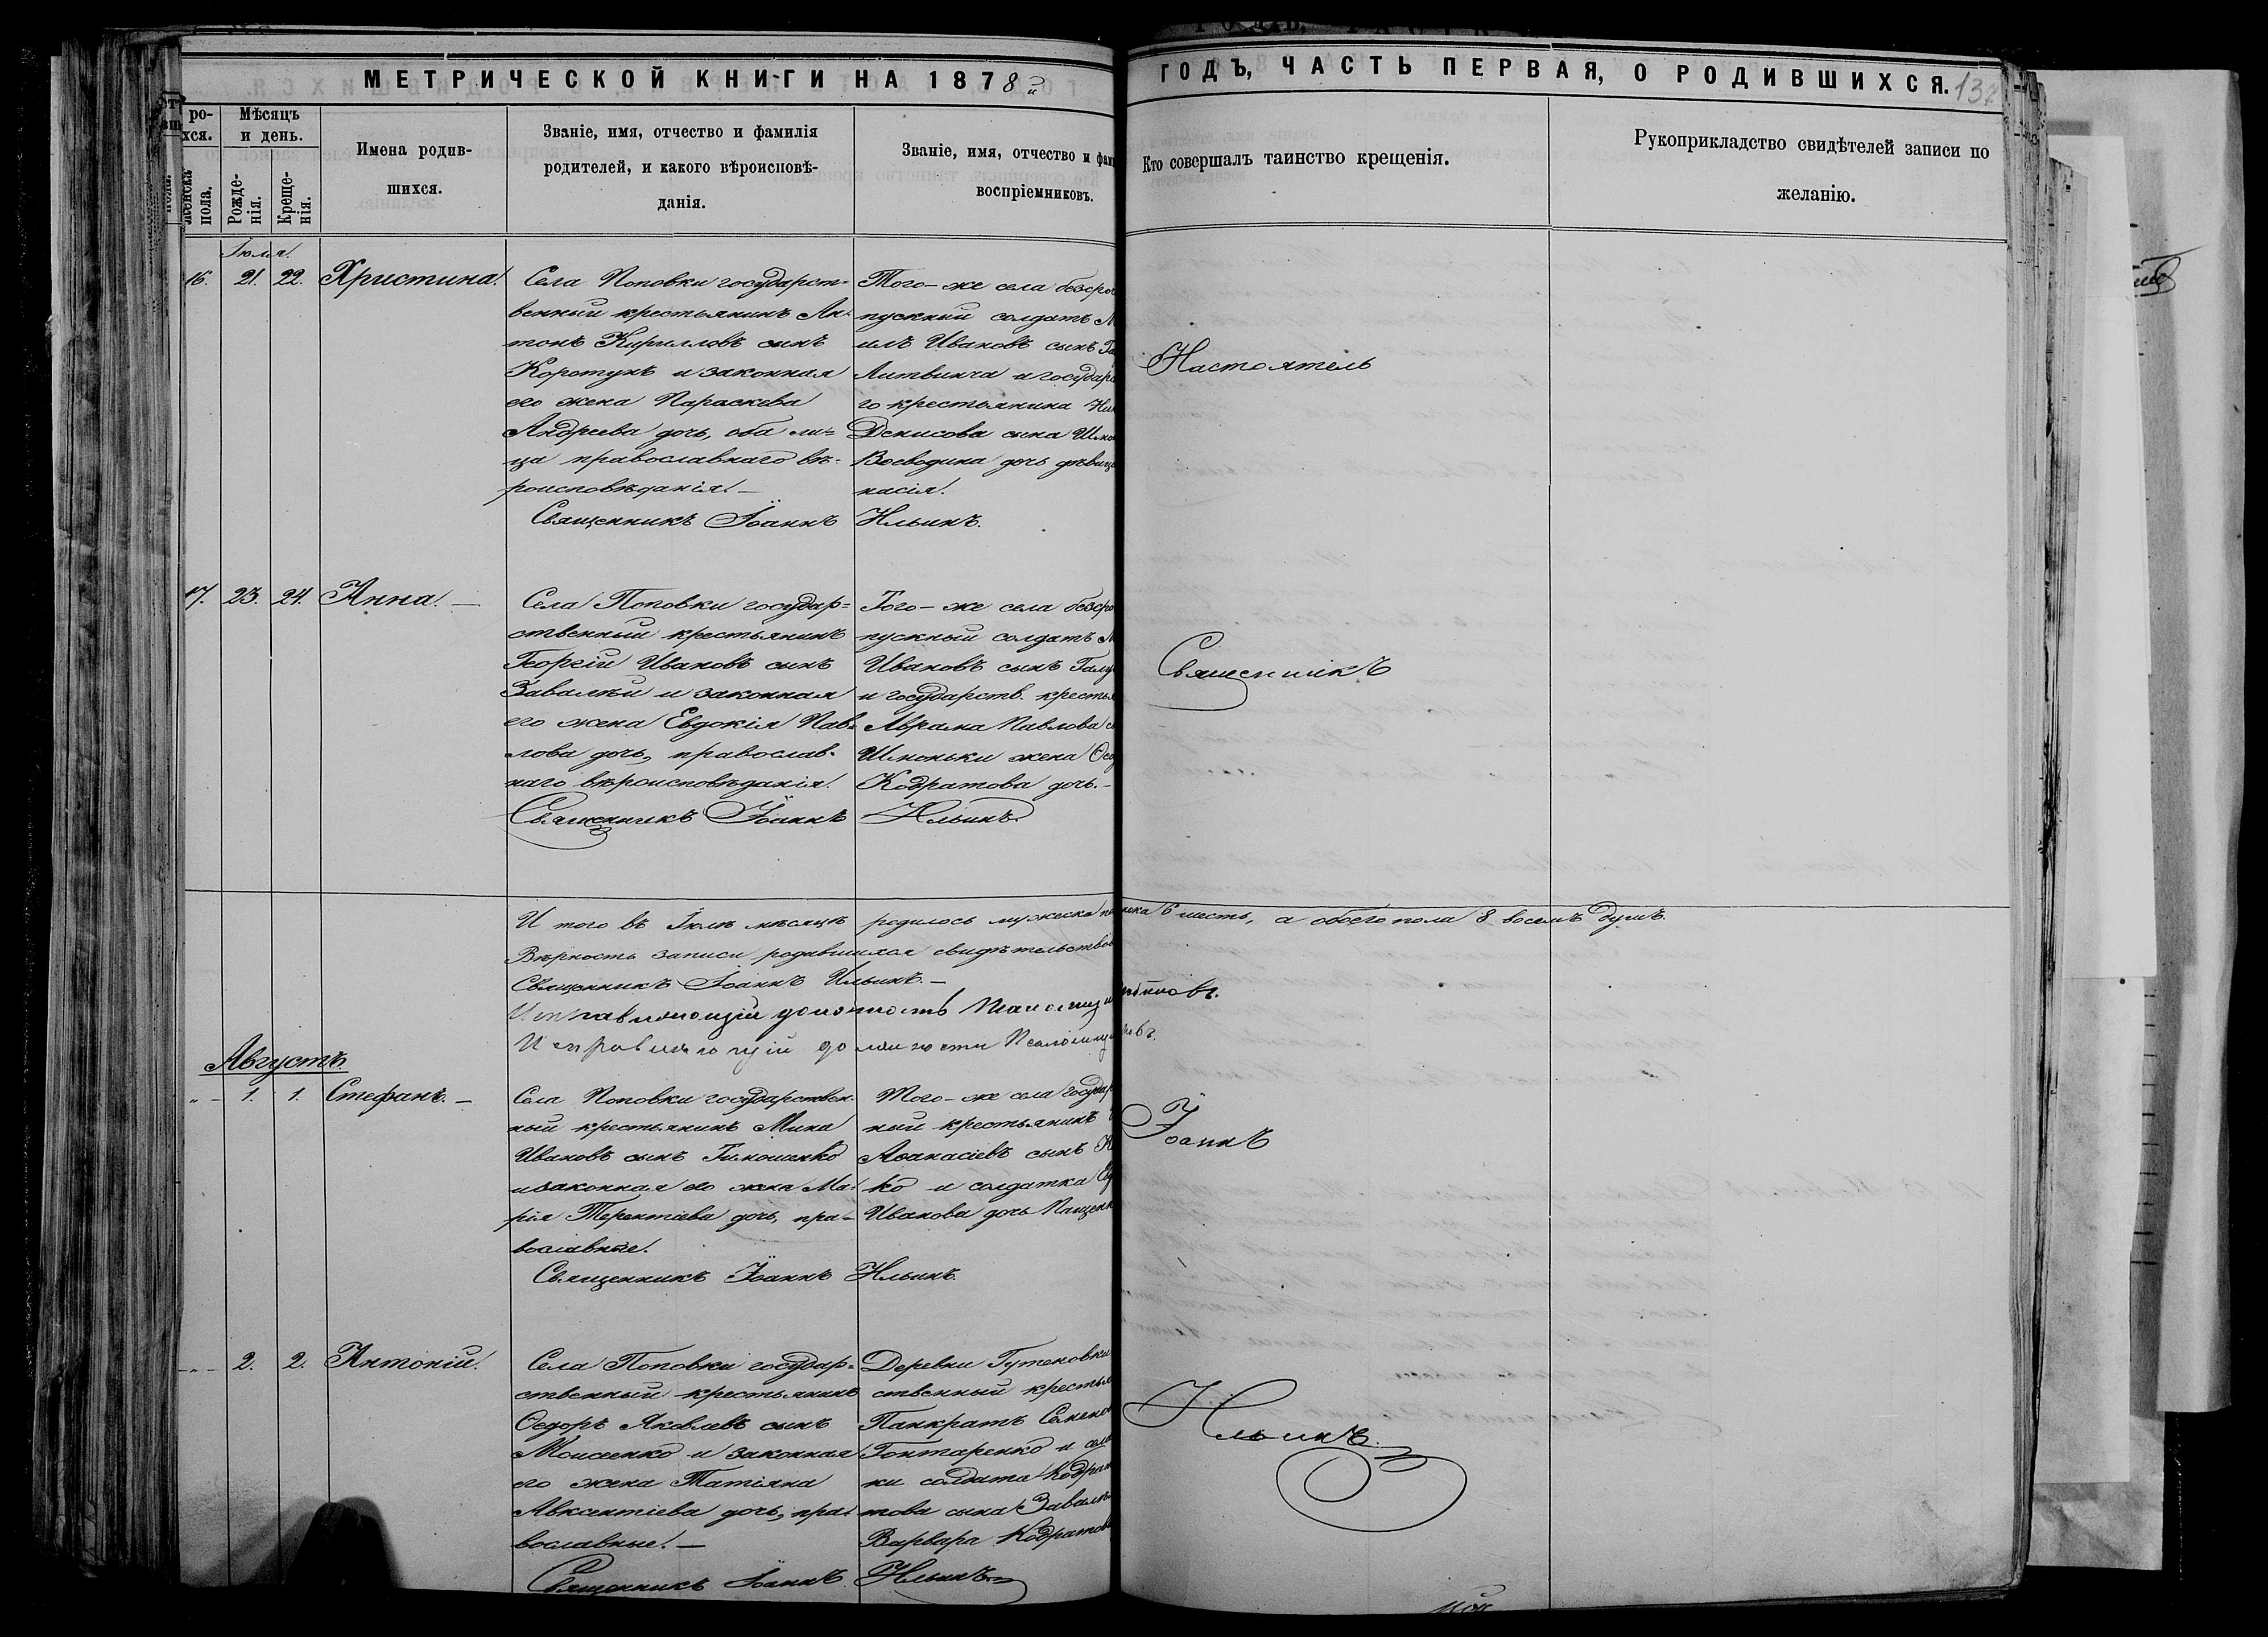 МЕТРИЧЕСКОЙ КНИГИ НА 1878й
ГОДЪ, ЧАСТЬ ПЕРВАЯ, О РОДИВШИХСЯ.
ро-
хся.
Мѣсяцъ
и день.
женска
пола.
Рожде-
нія.
Креще-
нія.
Имена родив-
шихся.
Званіе, имя, отчество и фамилія
родителей, и какого вѣроисповѣ-
данія.
Званіе, имя, отчество и фам
воспріемниковъ.
Кто совершалъ таинство крещенія.
Рукоприкладство свидѣтелей записи по
желанію.
Іюля.
16. 21. 22. Христина.
Села Поповки государст-
венный крестьянинъ Ан-
тонъ Кирилловъ сынъ
Коротунъ и законная
его жена Параскева
Андреева дочь, оба ли-
ца православнаго вѣ-
роисповѣданія.
Того-же села безсроч
пускный солдатъ М
илъ Ивановъ сынъ Га
Литвинча и государс
го крестьянина Ни
Денисова сына Шмо
Воеводина дочь дѣвица
насія.
Священникъ Іоаннъ Ильинъ.
Настоятель
17. 23. 24. Анна.
Села Поповки государ-
ственный крестьянинъ
Георгій Ивановъ сынъ
Завалѣй и законная
его жена Евдокія Пав-
лова дочь, православ-
наго вѣроисповѣданія.
Того-же села безсро
пускный солдатъ М
Ивановъ сынъ Галу
и государств. крестья
Аврама Павлова с
Шмоньки жена
Кодратова дочь.
Священникъ Іоаннъ Ильинъ
Священникъ
И того въ Іюлѣ мѣсяцѣ родилось мужеска
6 шесть, а обоего пола 8 восемъ душъ.
Вѣрность записи родившихся свидѣтельство
Священникъ Іоаннъ Ильинъ.
Исправляющій должность
Исправляющій должности
Августъ
1. 1. Стефанъ.
Села Поповки государствен-
ный крестьянинъ Мина
Ивановъ сынъ Тимошенко
и законная его жена Ма-
рія Терентіева дочь, пра-
вославные.
Того-же села государ
ный крестьянинъ
Аѳанасіевъ сынъ К
ко и солдатка
Иванова дочь Пащенк
Священникъ Іоаннъ Ильинъ.
Іоаннъ
2. 2. Антоній.
Села Поповки государ-
ственный крестьянинъ
Ѳедоръ Яковлевъ сынъ
Моисеенко и законная
его жена Татіяна
Авксентіева дочь, пра-
вославные.
Деревни Гутеновки
ственный крестья
Панкратъ Семено
Гонтаренко и села
ки солдата Кодра
това сына Завалѣ
Варвара Кодратов
Священникъ Іоаннъ Ильинъ
Ильинъ.